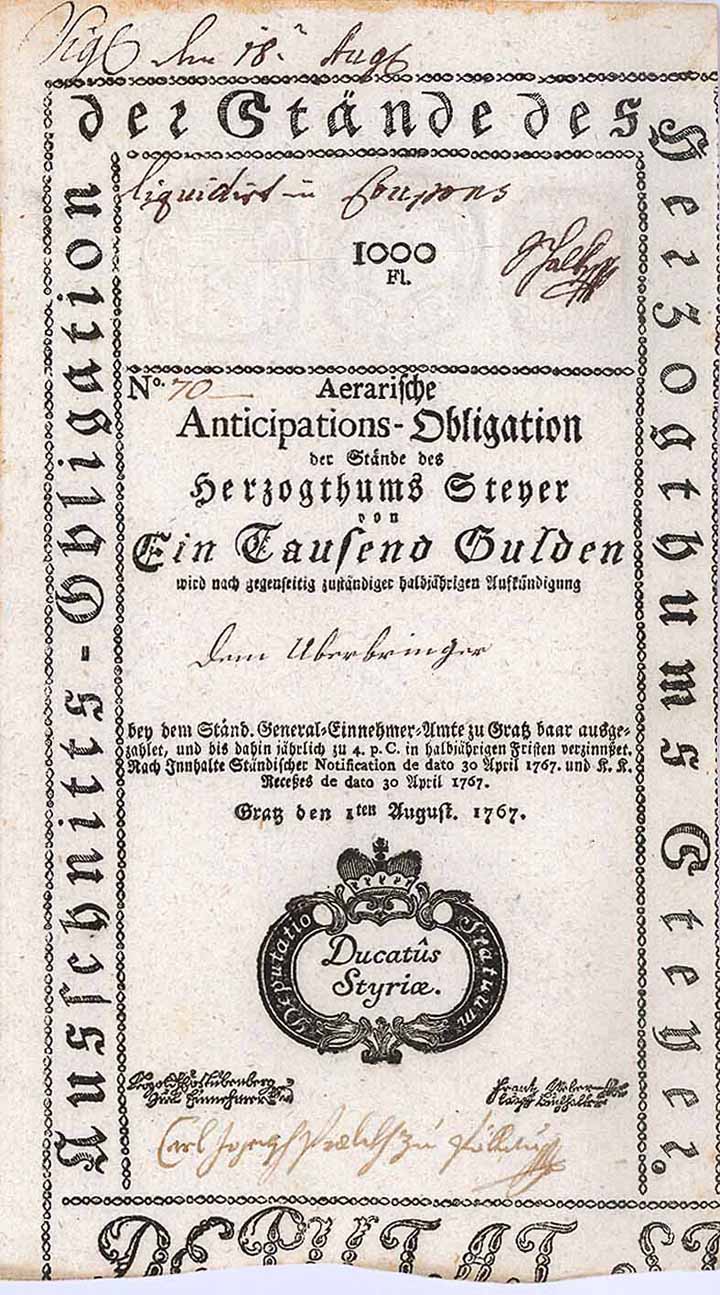 den 18. Aug
Ausschnitts-Obligation der Stände des Herzogthums Steyer.
liquidirt in Coupons
1000
Fl.
No. 70
Aerarische
Anticipations-Obligation
der Stände des
Herzogthums Steyer
von
Ein Tausend Gulden
wird nach gegenseitig zuständiger halbjährigen Aufkündigung
dem Uberbringer
bey dem Ständ. General-Einnehmer-Amte zu Gratz baar ausge-
zahlet, und bis dahin jährlich zu 4. p. C. in halbjährigen Fristen verzinnßet.
Nach Innhalte Ständischer Notification de dato 30 April 1767. und K. K.
Receßes de dato 30 April 1767.
Gratz den 1ten August. 1767.
Deputatio Statuum
Ducatûs
Styriæ.
Carl Joseph
DEPUTAT. ST